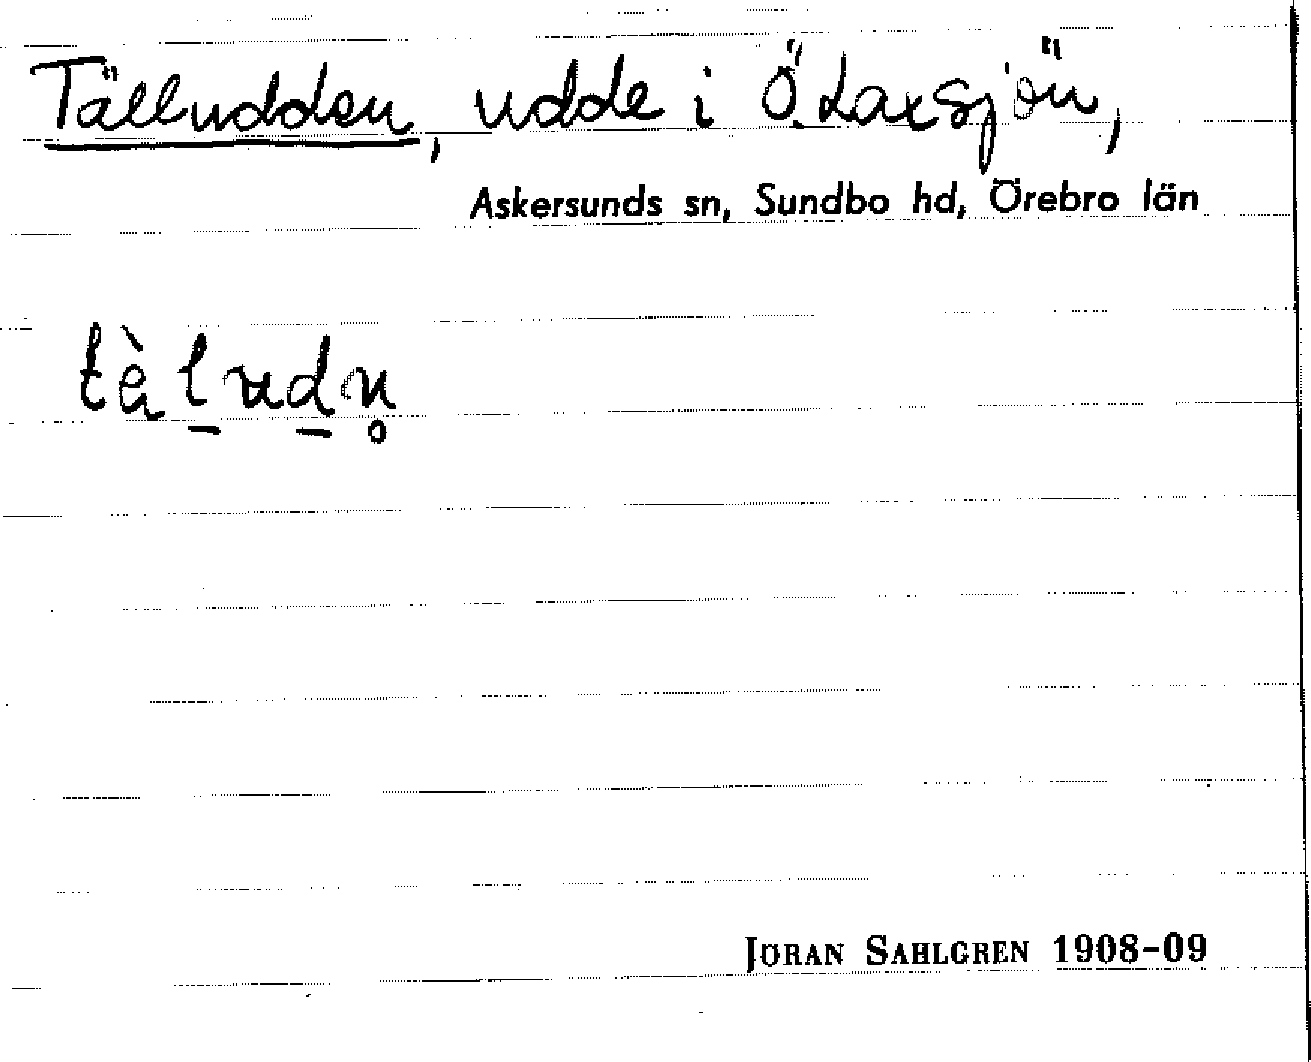 Tälludden, udde i Ö. Laxsjön,
Askersunds sn, Sundbo hd, Örebro län
tὲl̠ud̠n̥
JÖRAN SAHLGREN 1908-09